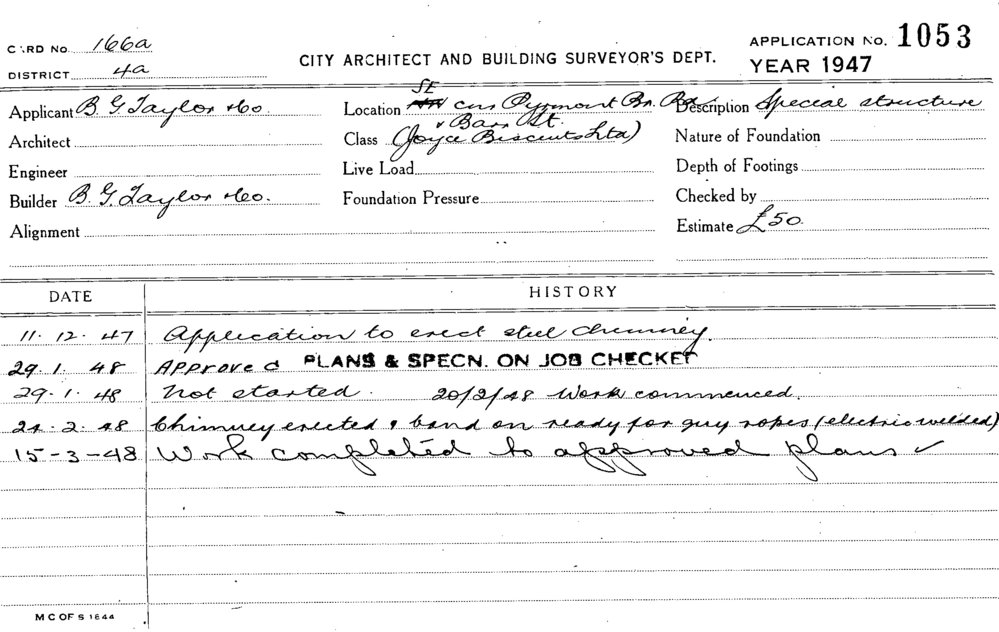 CARD No. 166a
DISTRICT 4a
CITY ARCHITECT AND BUILDING SURVEYOR'S DEPT.
APPLICATION No. 1053
YEAR 1947
Applicant B. G. Taylor & Co.
Architect
Engineer
Builder B. G. Taylor & Co.
Alignment
St
Location cnr Pyrmont Br. Rd
& Barr St.
Class (Joyce Biscuits Ltd)
Live Load
Foundation Pressure
Description Special structure
Nature of Foundation
Depth of Footings
Checked by
Estimate £50.
DATE HISTORY
11. 12. 47 Application to erect steel chimney.
29. 1. 48 Approved PLANS & SPECN. ON JOB CHECKED
29. 1. 48 Not started. 20/2/48 Work commenced.
2. 48 Chimney erected & band on ready for guy ropes (electric welded)
15-3-48 Work completed to approved plans ✓
M C OF S 1644